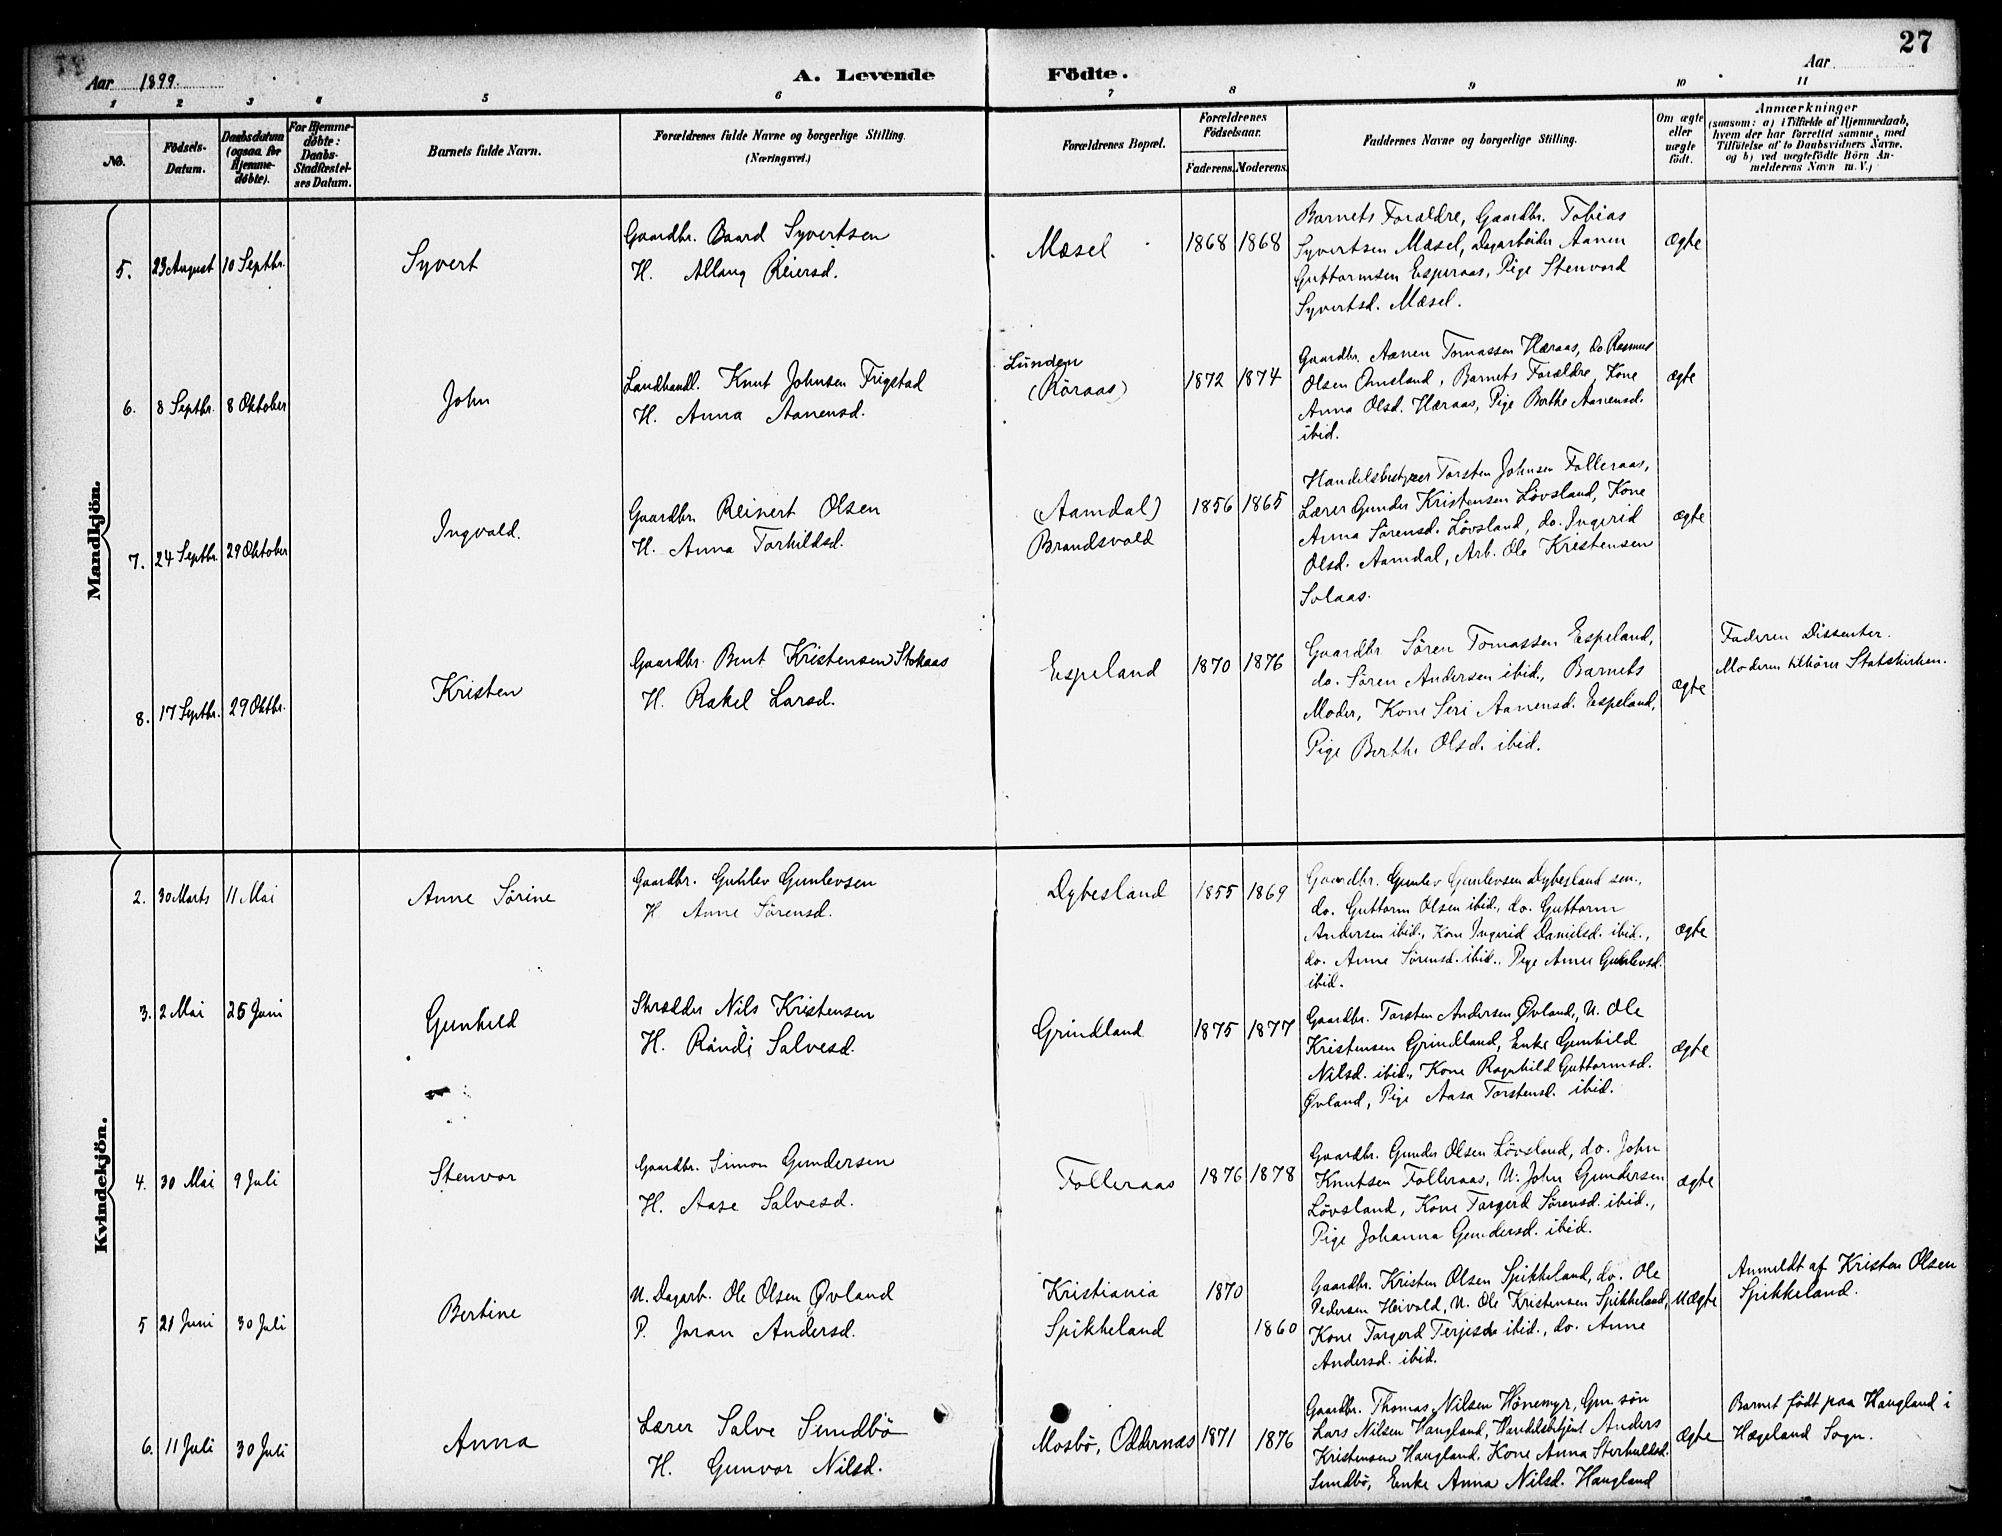 27
Aar 1899.
A. Levende Födte.
Aar
1 2 3 4 5 6 7 8 9 10 11
No.
Födsels-Datum.
Daabsdatum (ogsaa for Hjemme-döbte).
For Hjemme-döbte: Daabs-Stadfæstel-ses Datum.
Barnets fulde Navn.
Forældrenes fulde Navne og borgerlige Stilling.
(Næringsvei.)
Forældrenes Bopæl.
Forældrenes Födselsaar.
Faderens. Moderens.
Faddernes Navne og borgerlige Stilling.
Om ægte eller uægte födt.
Anmærkninger
(saasom: a) i Tilfælde af Hjemmedaab,
hvem der har forrettet samme, med
Tilföielse af to Daabsvidners Navne.
og b) ved uægtefödte Börn An-
melderens Navn m. V.)
Mandkjön.
5. 23 August 10 Septbr.
Syvert
Gaardbr. Baard Syvertsen
H. Allaug Reiersd.
Mæsel
1868 1868
Barnets Forældre, Gaardbr. Tobias
Syvertsen Mæsel, Dagarbeider Aanen
Guttormsen Esperaas, Pige Stenvord
Syvertsd. Mæsel.
ægte
6. 8 Septbr. 8 Oktober
John
Landhandl. Knut Johnsen Frigstad
H. Anna Aanensd.
Lunden
(Röraas)
1872 1874
Gaardbr. Aanen Tomassen Hæraas, do. Rasmus
Olsen Omsland, Barnets Forældre, Kone
Anna Olsd. Hæraas, Pige Berthe Aanensd.
ibid.
ægte
7. 24 Septbr. 29 Oktober
Ingvald.
Gaardbr. Reinert Olsen
H. Anna Torkildsd.
(Aamdal)
Brandsvold
1856 1865
Handelsbestyrer Torsten Johnsen Folleraas,
Lærer Gunder Kristensen Lövsland, Kone
Anna Sörensd. Lövsland, do. Ingerid
Olsd. Aamdal, Arb. Ole Kristensen
Solaas.
ægte
8. 17 Septbr. 29 Oktbr.
Kristen
Gaardbr. Bent Kristensen Stokaas
H. Rakel Larsd.
Espeland
1870 1876
Gaardbr. Sören Tomassen Espeland,
do. Sören Andersen ibid., Barnets
Moder, Kone Seri Aanensd. Espeland,
Pige Berthe Olsd. ibid.
ægte
Faderen Dissenter.
Moderen tilhörer Statskirken.
Kvindekjön.
2. 30 Marts 11 Mai
Anne Sørine
Gaardbr. Gunlev Gunlevsen
H. Anne Sörensd.
Dybesland
1855 1869
Gaardbr. Gunlev Gunlevsen Dybesland sen.,
do. Guttorm Olsen ibid., do. Guttorm
Andersen ibid., Kone Ingerid Danielsd. ibid.,
do. Anne Sörensd. ibid., Pige Anne Gunlevsd.
ibid.
ægte
3. 2 Mai 25 Juni
Gunhild
Skrædder Nils Kristensen
H. Randi Salvesd.
Grindland
1875 1877
Gaardbr. Torsten Andersen Øvland, U. Ole
Kristensen Grindland, Enke Gunhild
Nilsd. ibid., Kone Ragnhild Guttormsd.
Øvland, Pige Aasa Torstensd. ibid.
ægte
4. 30 Mai 9 Juli
Stenvor
Gaardbr. Simon Gundersen
H. Aase Salvesd.
Folleraas
1876 1878
Gaardbr. Gunder Olsen Lövsland, do. John
Knutsen Folleraas, U. John Gundersen
Lövsland, Kone Torgerd Sörensd. ibid.,
Pige Johanna Gundersd. ibid.
ægte
5 21 Juni 30 Juli
Bertine
U. Dagarb. Ole Olsen Øvland
P. Joran Andersd.
Kristiania
Spikkeland
1870
1860
Gaardbr. Kristen Olsen Spikkeland, do. Ole
Pedersen Heivold, U. Ole Kristensen Spikkeland,
Kone Torgerd Terjesd. ibid., do. Anne
Andersd. ibid.
uægte
Anmeldt af Kristen Olsen
Spikkeland.
6. 11 Juli 30 Juli
Anna
Lærer Salve Sundbö
H. Gunvor Nilsd.
Mosbö, Oddernæs
1871 1876
Gaardbr. Thomas Nilsen Hönemyr, Gm. sön
Lars Nilsen Haugland, Handelsbetjent Anders
Kristensen Haugland, Kone Anna
Sundbö, Enke Anna Nilsd. Haugland
ægte
Barnet födt paa Haugland i
Hægeland Sogn.